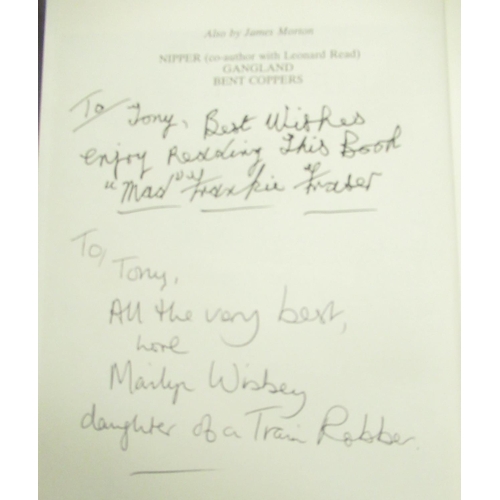 Also by James Morton
NIPPER (co-author with Leonard Read)
GANGLAND
BENT COPPERS
To Tony, Best Wishes
enjoy Reading This Book
"Mad" Frankie Fraser
To,
Tony,
All the very best,
love
Marilyn Wisbey
daughter of a Train Robber.